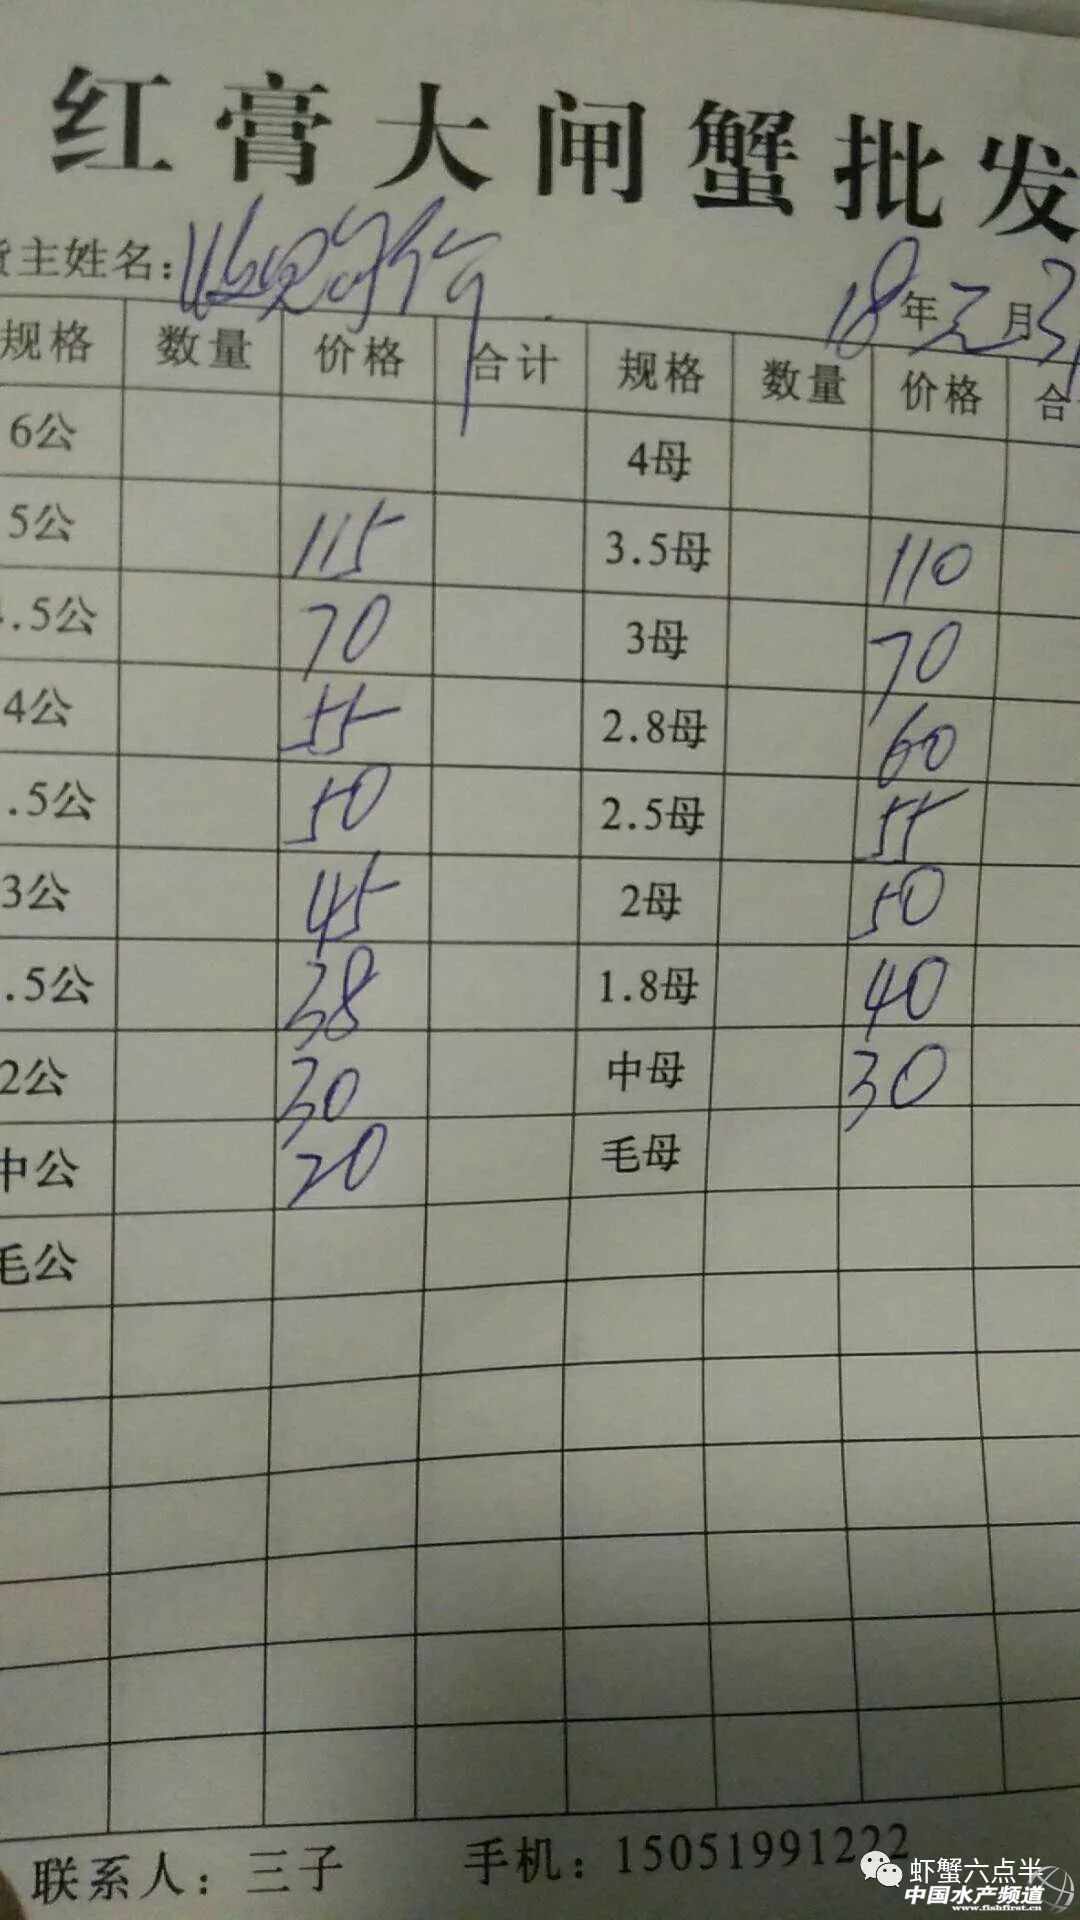 红膏大闸蟹批发
货主姓名:
18年 月
规格 数量 价格 合计 规格 数量 价格 合
6公 4母
5公 115 3.5母 110
.5公 70 3母 70
4公 55 2.8母 60
.5公 50 2.5母 55
3公 45 2母 50
.5公 38 1.8母 40
2公 30 中母 30
中公 20 毛母
毛公
联系人:三子 手机:15051991222
虾蟹六点半
中国水产频道
www.fishfirst.cn